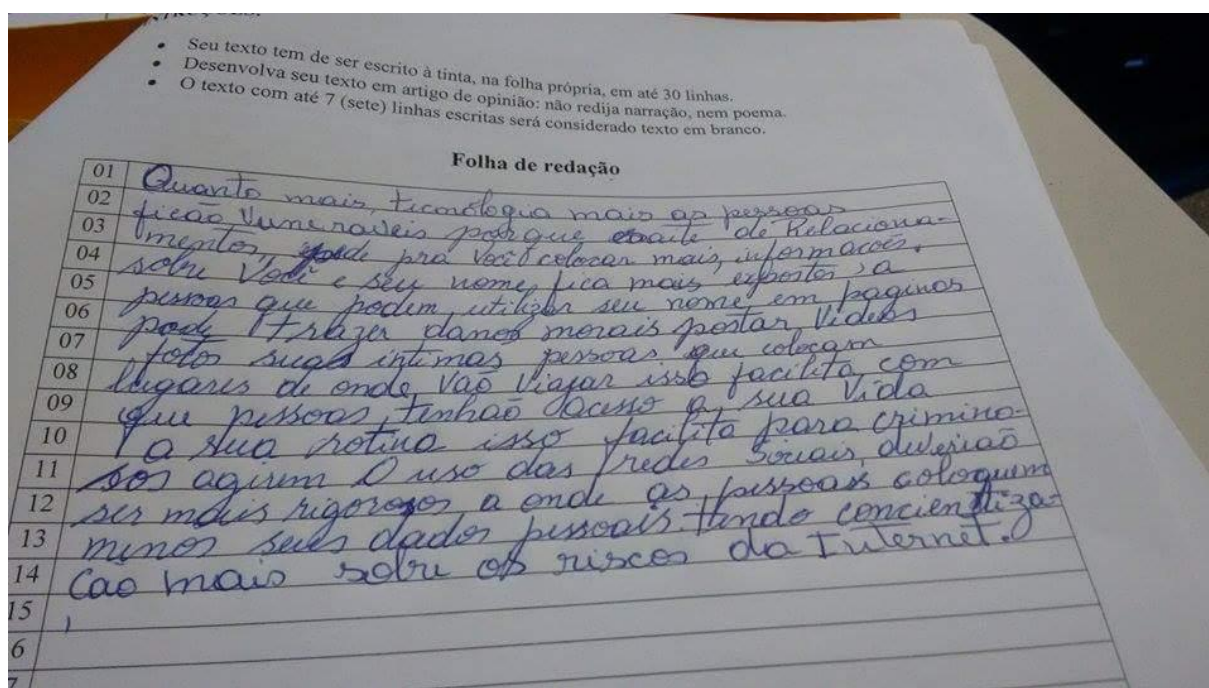 • Seu texto tem de ser escrito à tinta, na folha própria, em até 30 linhas.
• Desenvolva seu texto em artigo de opinião: não redija narração, nem poema.
• O texto com até 7 (sete) linhas escritas será considerado texto em branco.
Folha de redação
01 Quanto mais, ticnologia mais as pessoas
02 ficão Vuneraveis porque de Relaciona-
03 mentos, pra você colocar mais, informacoes.
04 sobre Você e seu nome, fica mais expostos, a
05 pessoas que podem, utilizar seu nome, em paginas
06 pode trazer danos morais postar, Videos
07 fotos suas intimas pessoas que colocam
08 lugares de onde, Vaõ Viajar isso facilita, com
09 que pessoas, tenhaõ acesso a, sua Vida
10 a sua rotina isso facilita para crimino-
11 sos agirem O uso das redes Sociais, deveriaõ
12 ser mais rigorosos, a onde as, pessoas coloquem
13 menos seus dados pessoais. tendo concientiza-
14 Cao mais sobre os riscos da Internet.
15
6
7